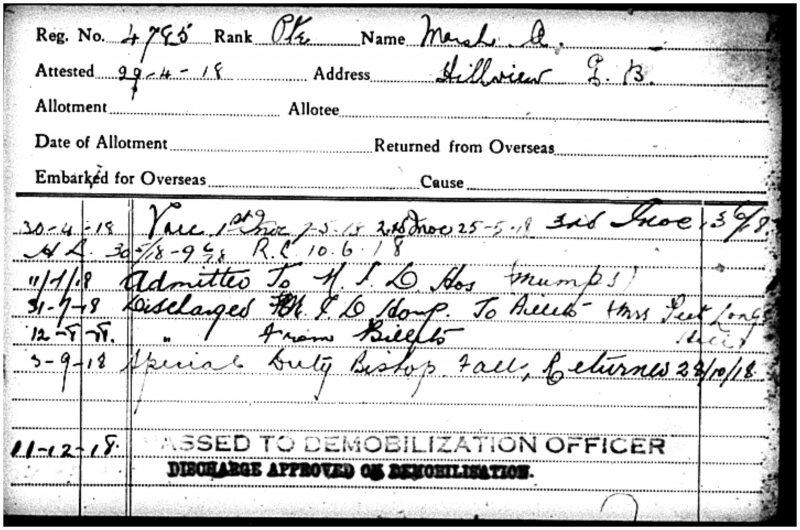 Reg. No. 4785 Rank Pte Name Marsh A.
Attested 29-4-18 Address Hillview T. B.
Allotment Allotee
Date of Allotment Returned from Overseas
Embarked for Overseas Cause
30-4-18 Vacc 1st Inoc 7-5-18 2nd Inoc 25-5-18 3rd Inoc 13/6/18
H L. 30/5/18-9/6/18 R.L. 10.6.18
11/7/18 Admitted To M. I. D. Hos (mumps)
31-7-18 Discharged I D Hosp. To Billets (Mrs Peet Longs
12-8-18. " From Billets Hill)
3-9-18 Special Duty Bishop Fall, Returned 28/10/18
11-12-18. PASSED TO DEMOBILIZATION OFFICER
DISCHARGE APPROVED ON DEMOBILISATION.